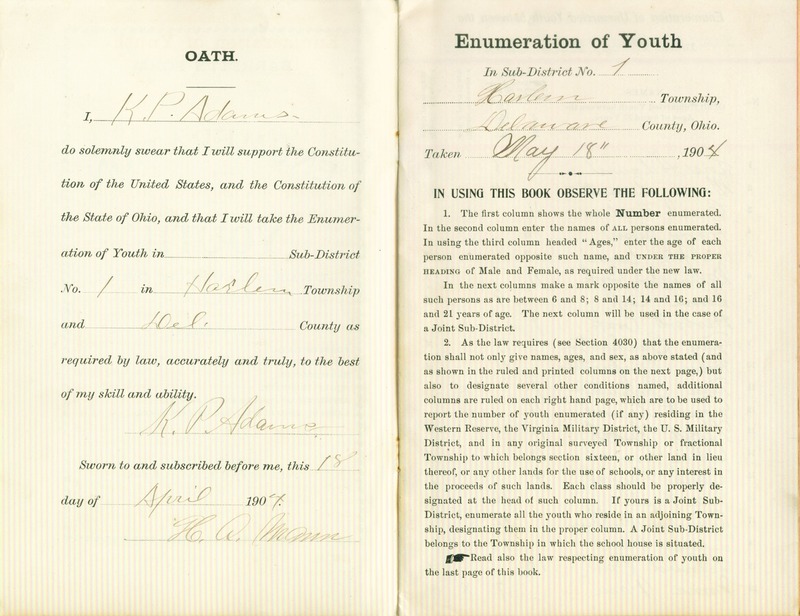 OATH.
I, K. P. Adams
do solemnly swear that I will support the Constitu-
tion of the United States, and the Constitution of
the State of Ohio, and that I will take the Enumer-
ation of Youth in Sub-District
No. 1 in Harlem Township
and Del. County as
required by law, accurately and truly, to the best
of my skill and ability.
K. P. Adams
Sworn to and subscribed before me, this 18
day of April 1904.
H. A. Mann
Enumeration of Youth
In Sub-District No. 1
Harlem Township,
Delaware County, Ohio.
Taken May 18" , 1904
IN USING THIS BOOK OBSERVE THE FOLLOWING:
1. The first column shows the whole Number enumerated.
In the second column enter the names of ALL persons enumerated.
In using the third column headed "Ages," enter the age of each
person enumerated opposite such name, and UNDER THE PROPER
HEADING of Male and Female, as required under the new law.
In the next columns make a mark opposite the names of all
such persons as are between 6 and 8; 8 and 14; 14 and 16; and 16
and 21 years of age. The next column will be used in the case of
a Joint Sub-District.
2. As the law requires (see Section 4030) that the enumera-
tion shall not only give names, ages, and sex, as above stated (and
as shown in the ruled and printed columns on the next page,) but
also to designate several other conditions named, additional
columns are ruled on each right hand page, which are to be used to
report the number of youth enumerated (if any) residing in the
Western Reserve, the Virginia Military District, the U. S. Military
District, and in any original surveyed Township or fractional
Township to which belongs section sixteen, or other land in lieu
thereof, or any other lands for the use of schools, or any interest in
the proceeds of such lands. Each class should be properly de-
signated at the head of such column. If yours is a Joint Sub-
District, enumerate all the youth who reside in an adjoining Town-
ship, designating them in the proper column. A Joint Sub-District
belongs to the Township in which the school house is situated.
Read also the law respecting enumeration of youth on
the last page of this book.